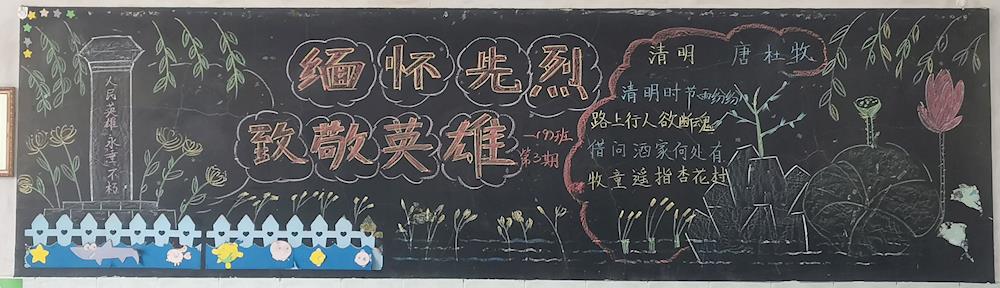 人民英雄永垂不朽
缅怀先烈
致敬英雄
一(7)班
第3期
清明 唐 杜牧
清明时节雨纷纷
路上行人欲断魂
借问酒家何处有
牧童遥指杏花村